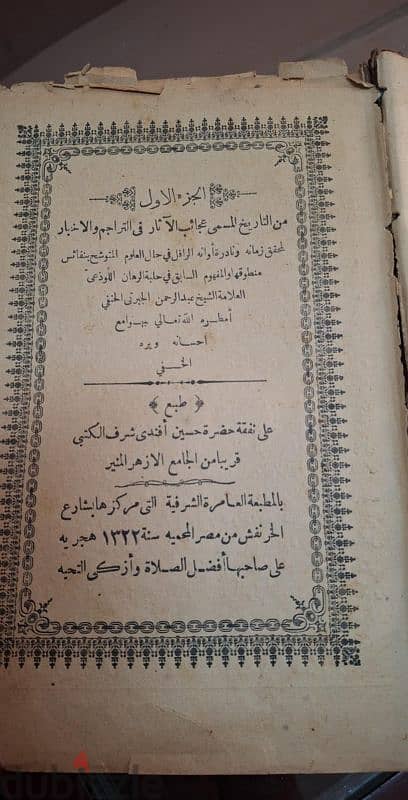 الجزء الاول
من التاريخ المسمى عجائب الآثار فى التراجم والاخبار
لمحقق زمانه ونادرة أوانه الرافل فى حلل العلوم المتوشح بنفائس
منطوقها والمفهوم السابق فى حلبة الرهان اللوذعى
العلامة الشيخ عبدالرحمن الجبرتى الحنفى
أمطره الله تعالى بهوامع
احسانه وبره
الخفى
﴿ طبع ﴾
على نفقة حضرة حسين أفندى شرف الكتبى
قريبا من الجامع الازهر المنير
بالمطبعة العامرة الشرفية التى مركزها بشارع
الخرنفش من مصر المحميه سنة ١٣٢٢ هجريه
على صاحبها أفضل الصلاة وأزكى التحيه
dubizzle